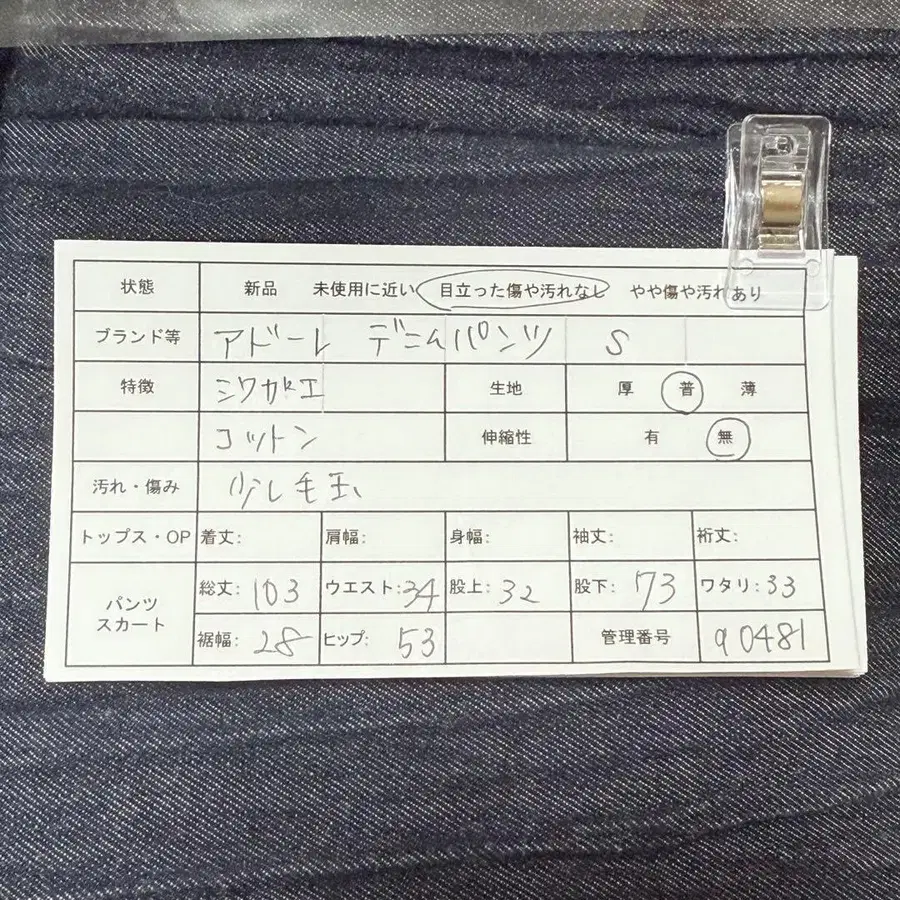 状態 新品 未使用に近い 目立った傷や汚れなし やや傷や汚れあり
ブランド等 アドーレ デニムパンツ S
特徴 シワガエ 生地 厚 普 薄
コットン 伸縮性 有 無
汚れ・傷み 少し毛玉
トップス・OP 着丈: 肩幅: 身幅: 袖丈: 裄丈:
パンツ スカート 総丈: 103 ウエスト: 34 股上: 32 股下: 73 ワタリ: 33
裾幅: 28 ヒップ: 53 管理番号 90481